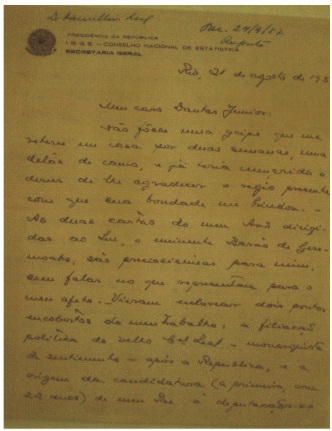 Rec. 24/9/52
Augusto
PRESIDÊNCIA DA REPÚBLICA
I.B.G.E. — CONSELHO NACIONAL DE ESTATÍSTICA
SECRETARIA GERAL
Rio, 21 de agosto de 195
Meu caro Dantas Junior:
Não fôsse uma gripe que me
reteve em casa por duas semanas, uma
delas de cama, e já teria cumprido o
dever de lhe agradecer o régio presente
com que sua bondade me
As duas cartas do meu Avô dirigi-
das ao seu, o eminente Barão de Gere-
moabo, são preciosíssimas para mim,
sem falar no que representam para o
meu afeto. Vieram esclarecer dois pontos
encobertos do meu trabalho: a filiação
política do velho Cel. Leal – monarquista
de sentimento – após a República, e a
origem da candidatura (a primeira, com
22 anos) de meu Pae à deputação